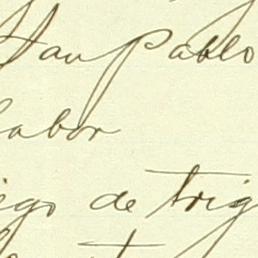 San Pablo
labor
de trig